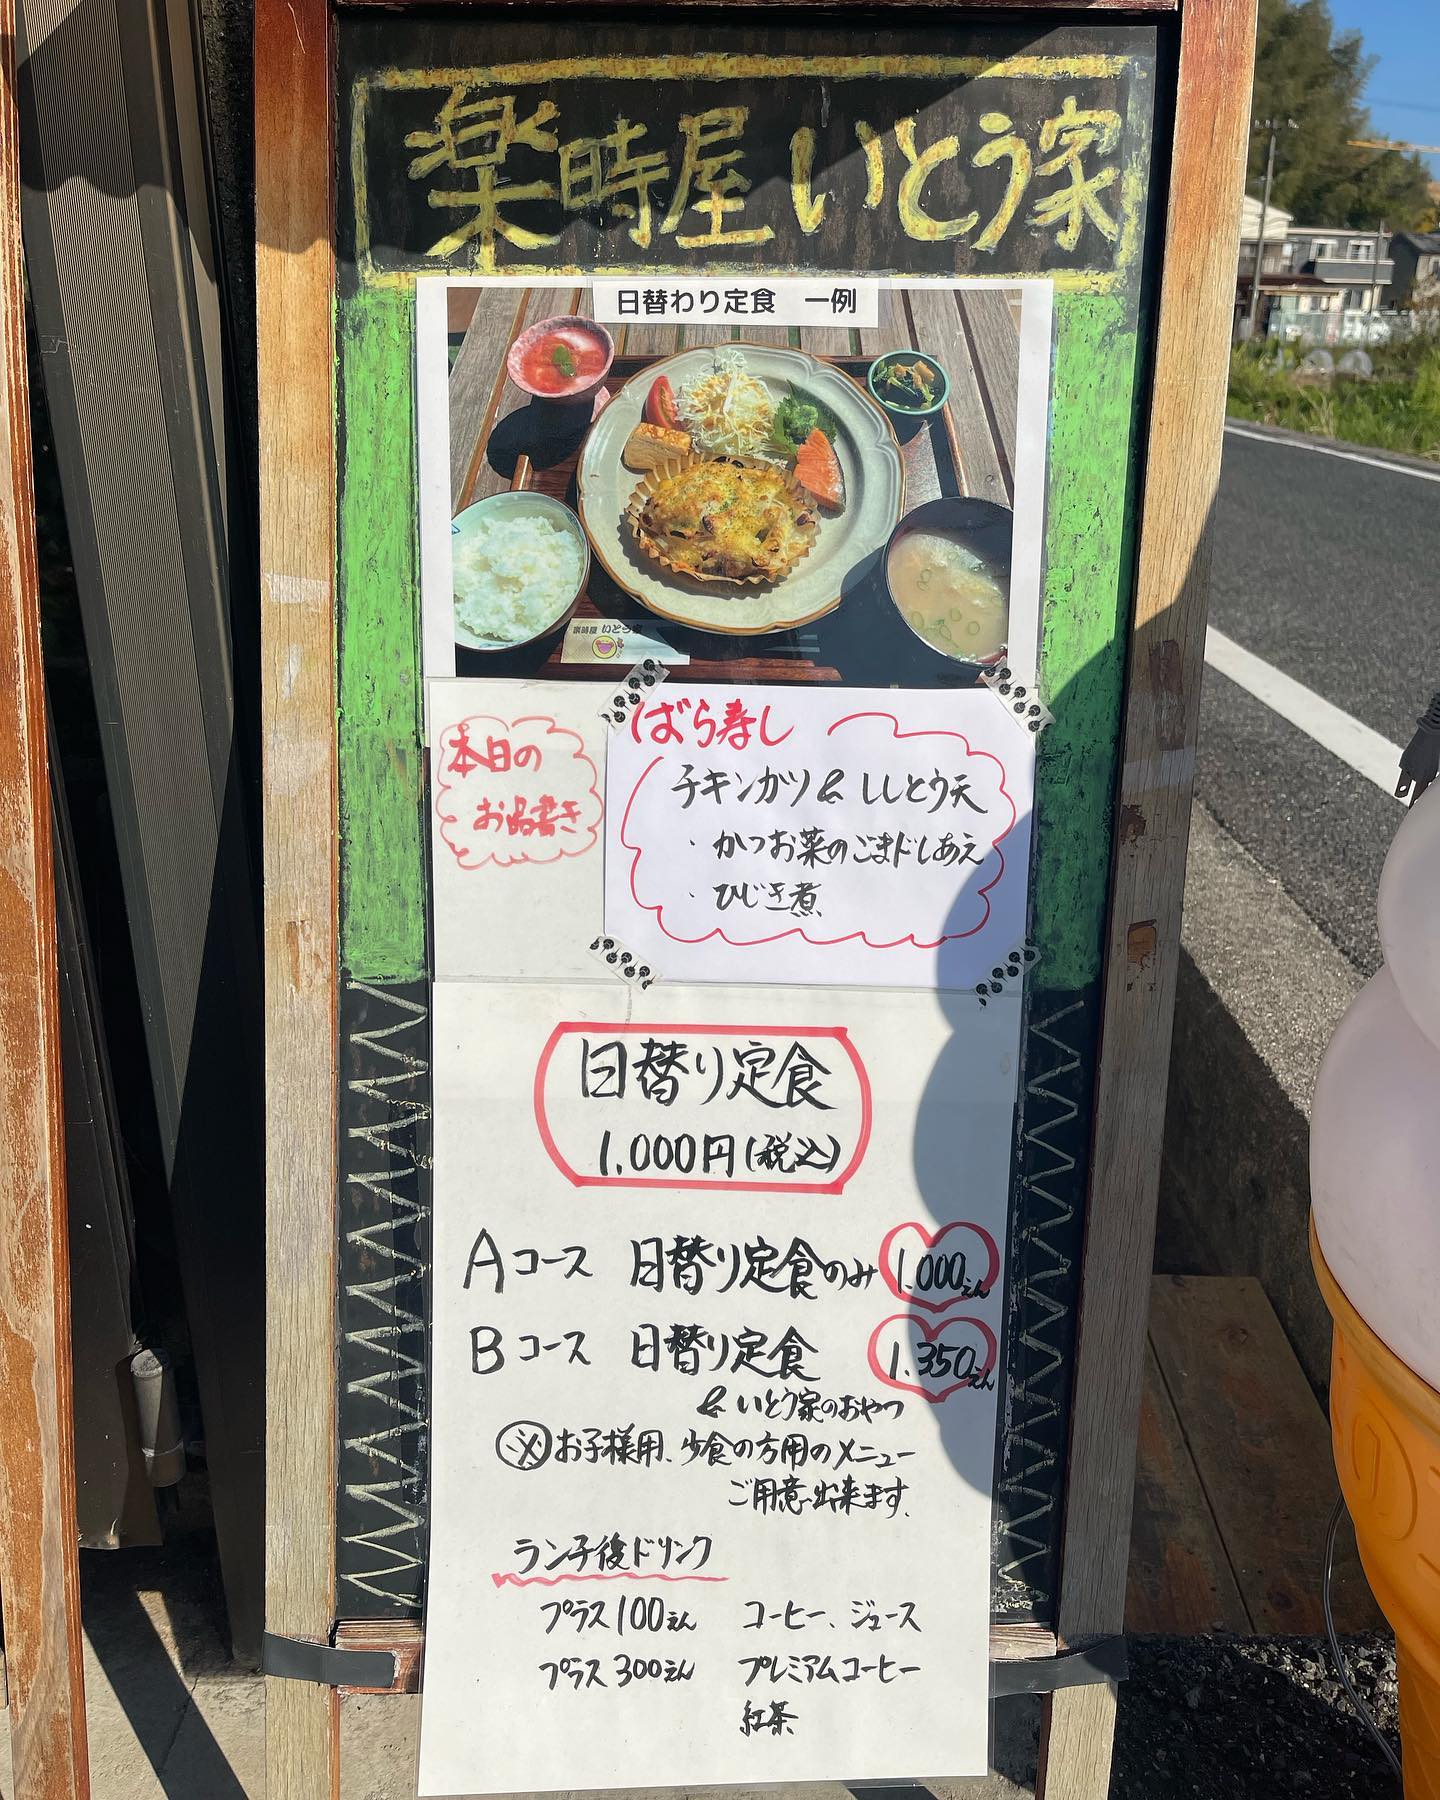 楽時屋 いとう家
日替わり定食 一例
楽時屋 いとう家
本日の
お品書き
ばら寿し
チキンカツ & ししとう天
・かつお菜のごまドレあえ
・ひじき煮
日替り定食
1,000円(税込)
Aコース 日替り定食のみ 1,000えん
Bコース 日替り定食 1,350えん
& いとう家のおやつ
※お子様用、少食の方用のメニュー
ご用意出来ます。
ランチ後ドリンク
プラス100えん コーヒー、ジュース
プラス300えん プレミアムコーヒー
紅茶